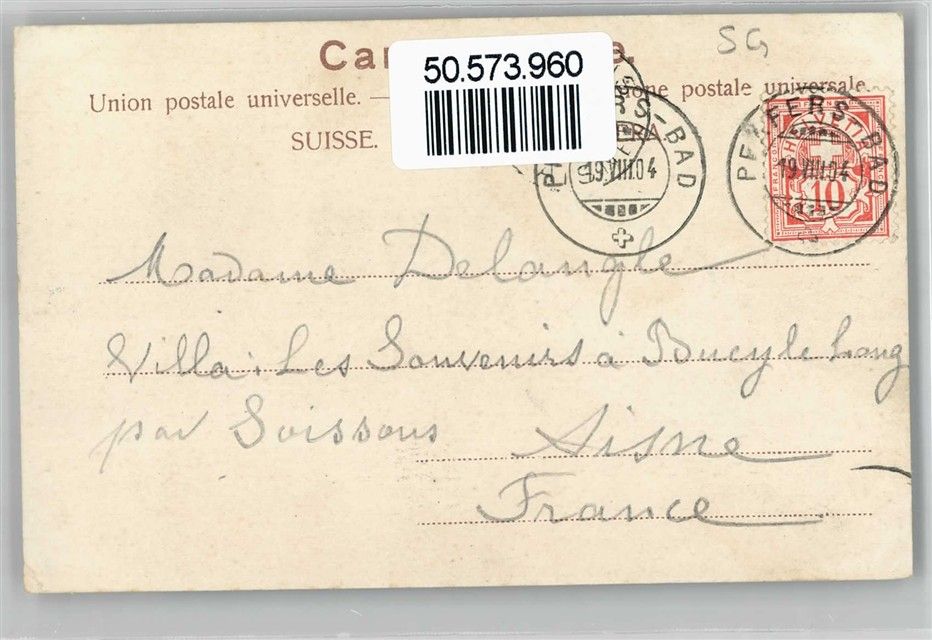 SG
50.573.960
Union postale universelle. — one postale universale.
SUISSE.
PFÆFERS-BAD
19.VIII.04
PFÆFERS-BAD
19.VIII.04
HELVETIA
10
Madame Delangle
Villa: Les Souvenirs à Bucy le Long
par Soissons Aisne
France